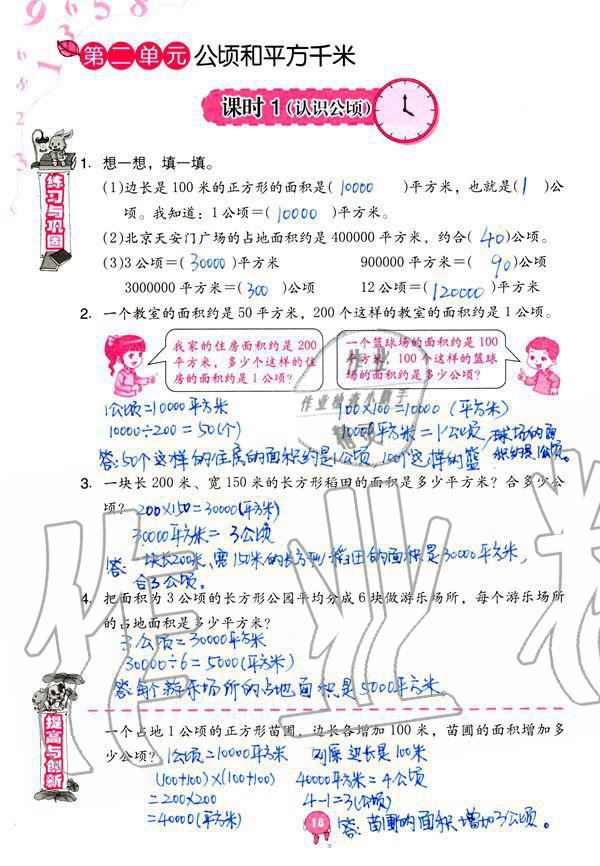 第二单元 公顷和平方千米
课时1(认识公顷)
练习与巩固
1. 想一想，填一填。
(1)边长是100米的正方形的面积是(10000)平方米，也就是(1)公
顷。我知道：1公顷=(10000)平方米。
(2)北京天安门广场的占地面积约是400000平方米，约合(40)公顷。
(3)3公顷=(30000)平方米 900000平方米=(90)公顷
3000000平方米=(300)公顷 12公顷=(120000)平方米
2. 一个教室的面积约是50平方米，200个这样的教室的面积约是1公顷。
我家的住房面积约是200
平方米，多少个这样的住
房的面积约是1公顷?
一个篮球场的面积约是100
平方米，100个这样的篮球
场的面积约是多少公顷?
1公顷=10000平方米
10000÷200=50(个)
答:50个这样的住房的面积约是1公顷,
100×100=10000(平方米)
10000平方米=1公顷
100个这样的篮球场的面
积约是1公顷。
3. 一块长200米、宽150米的长方形稻田的面积是多少平方米? 合多少公
顷? 200×150=30000(平方米)
30000平方米=3公顷
答:一块长200米、宽150米的长方形稻田的面积是30000平方米,
合3公顷。
4. 把面积为3公顷的长方形公园平均分成6块做游乐场所，每个游乐场所
的占地面积是多少平方米?
3公顷=30000平方米
30000÷6=5000(平方米)
答:每个游乐场所的占地面积是5000平方米。
提高与创新
一个占地1公顷的正方形苗圃，边长各增加100米，苗圃的面积增加多
少公顷? 1公顷=10000平方米 则原边长是100米
(100+100)×(100+100) 40000平方米=4公顷
=200×200 4-1=3(公顷)
=40000(平方米) 答:苗圃的面积增加3公顷。
18
作业
作业检查小助手
作业精